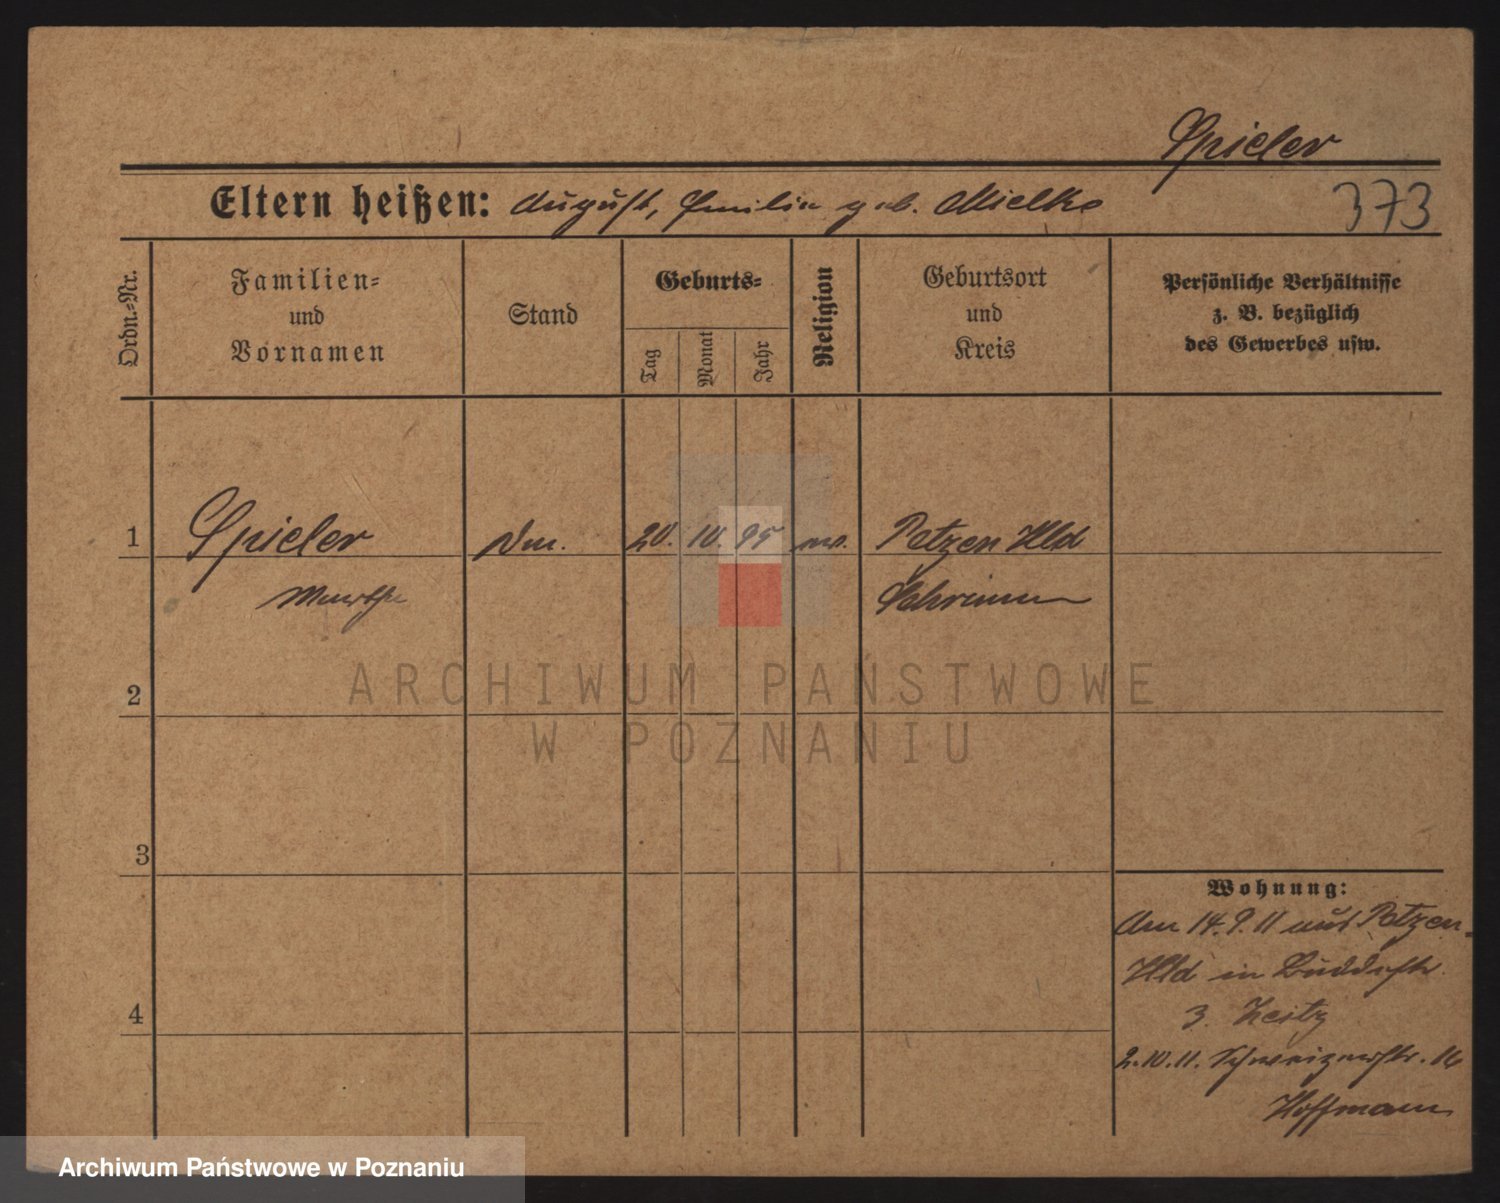 Spieler
Eltern heißen: August, Emilie geb. Mielke
373
Ordn.-Nr.
Familien-
und
Vornamen
Stand
Geburts-
Tag
Monat
Jahr
Religion
Geburtsort
und
Kreis
Persönliche Verhältnisse
z. B. bezüglich
des Gewerbes usw.
1
Spieler
20. 10. 95
Petzen Hld
Martha
Schrimm
ARCHIWUM PAŃSTWOWE
W POZNANIU
2
3
4
Wohnung:
Am 14.9.11 aus Petzen-
Hld in Buddestr.
3. Zeitz
2.10.11. Schweizerstr. 16
Hoffmann
Archiwum Państwowe w Poznaniu